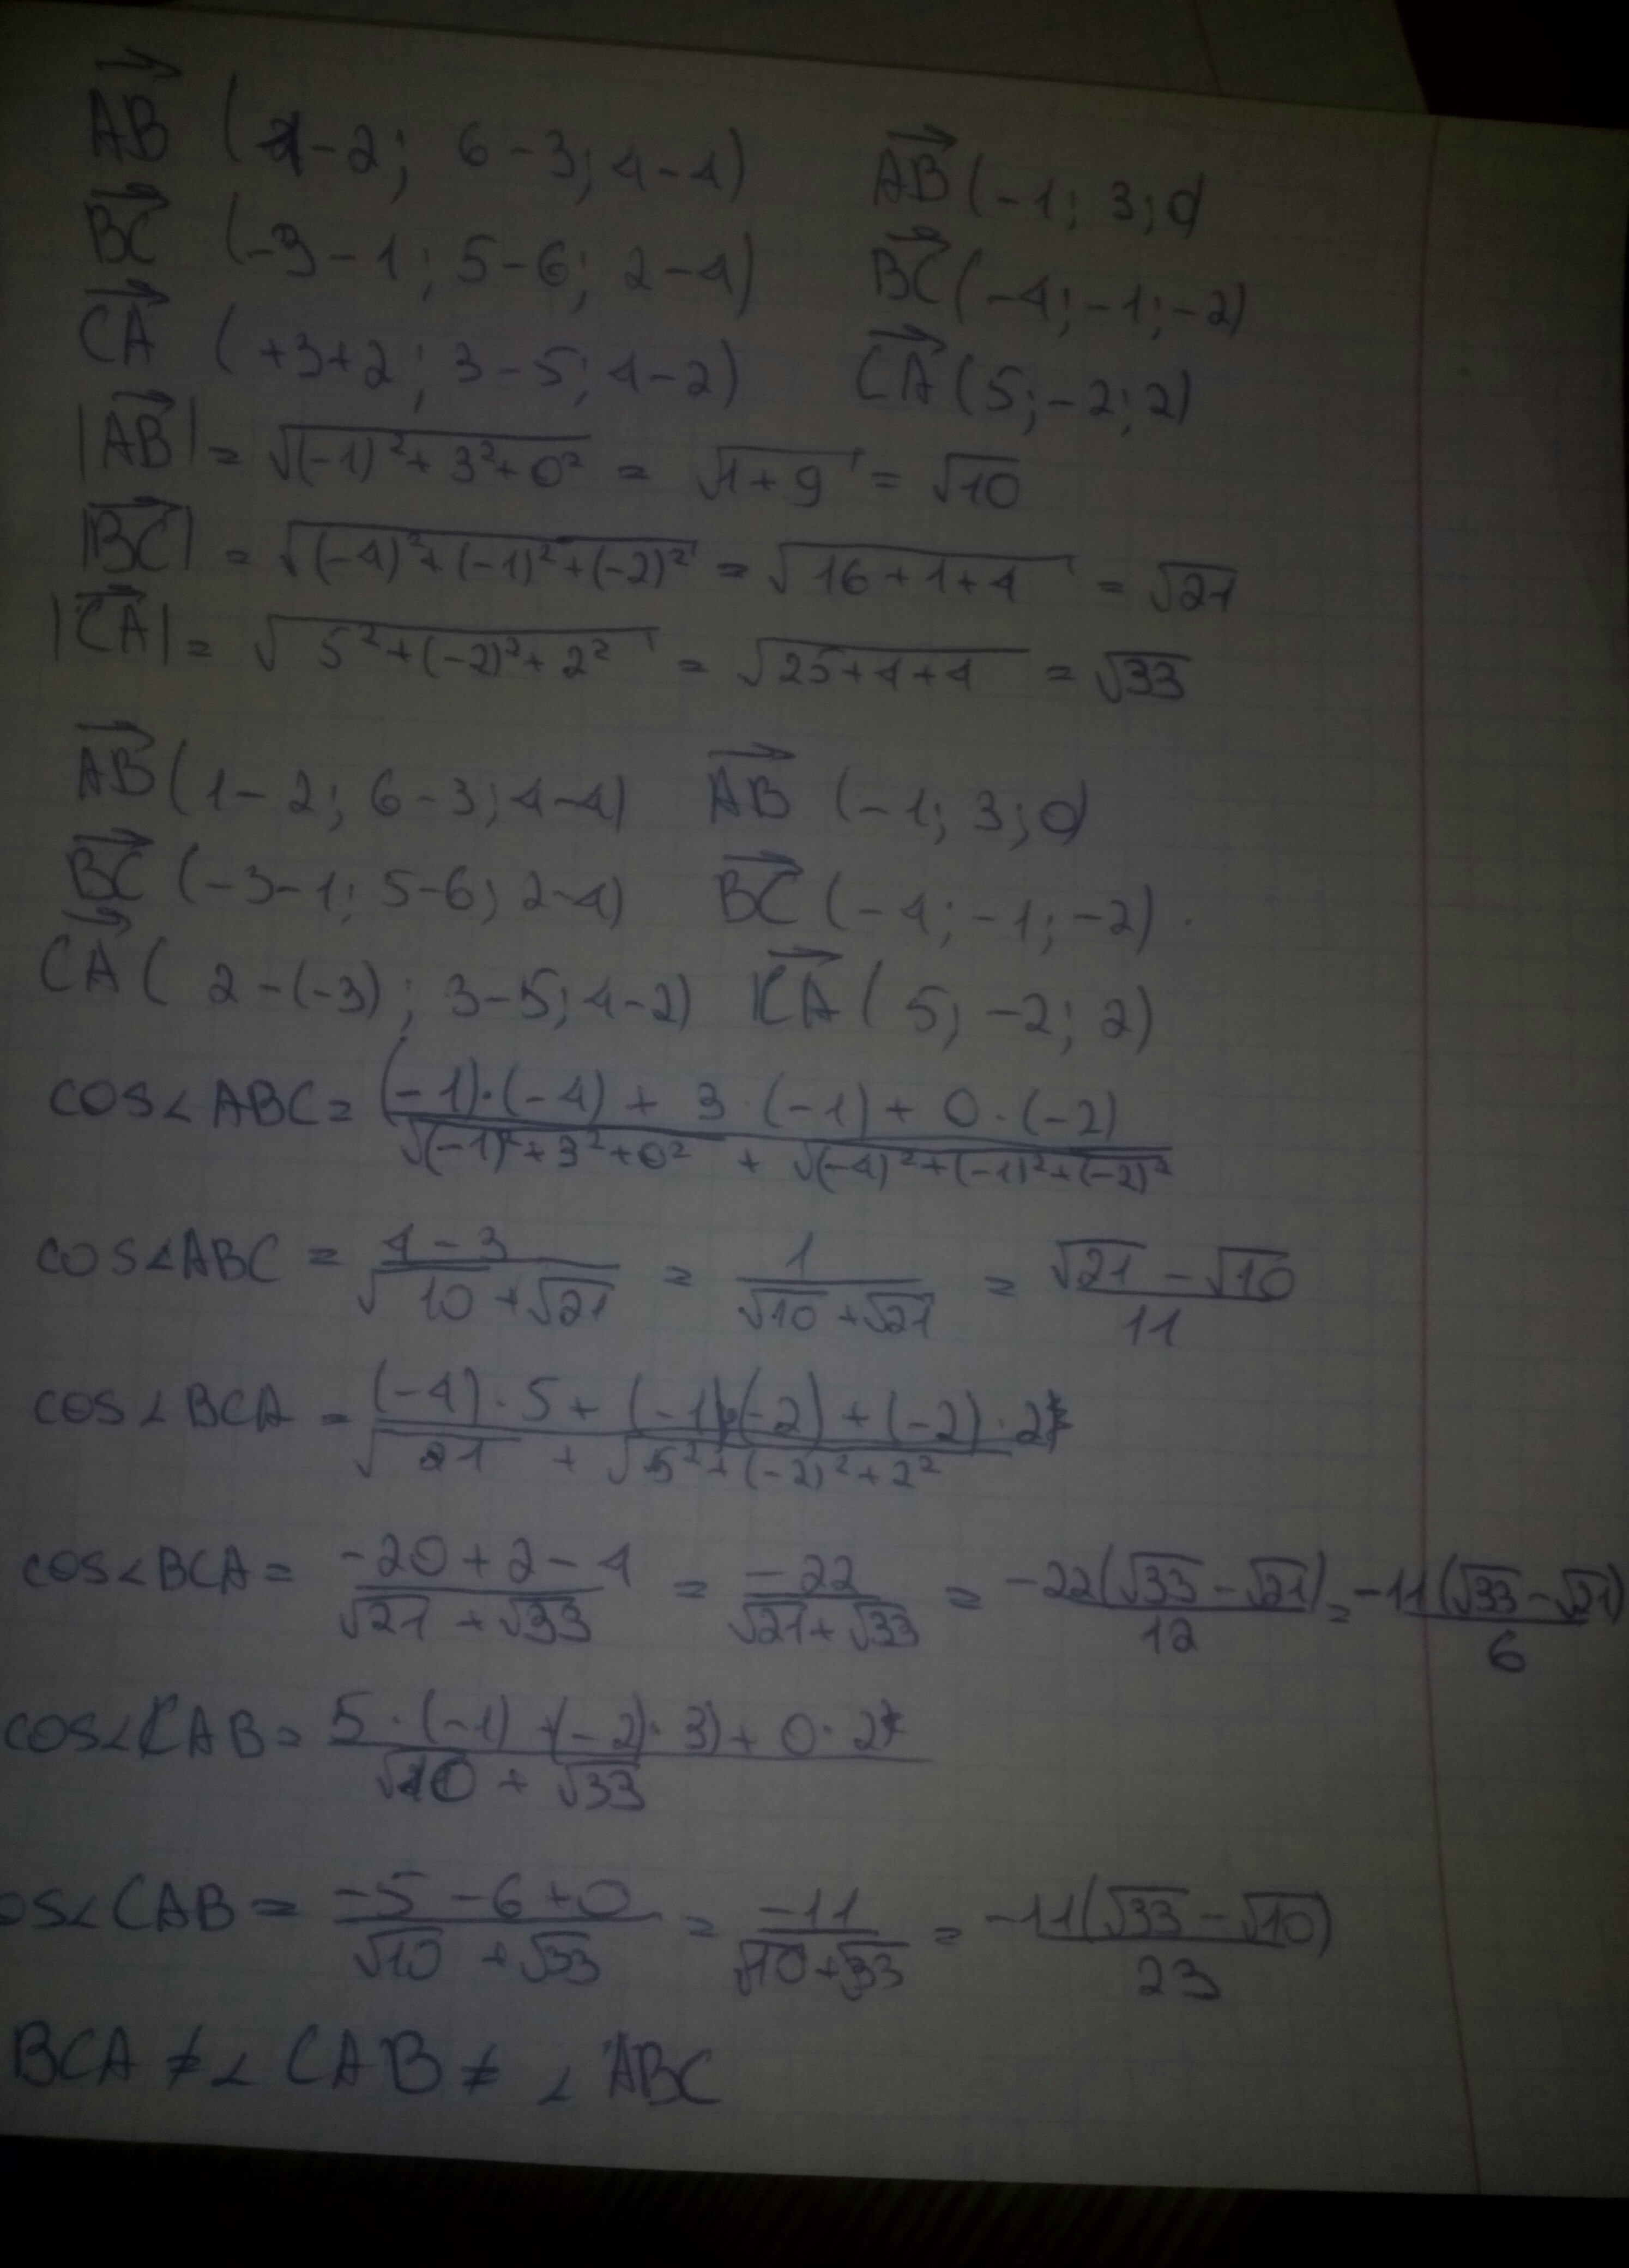 AB (1-2; 6-3; 4-4) AB (-1; 3; 0)
BC (-3-1; 5-6; 2-4) BC (-4; -1; -2)
CA (+3+2; 3-5; 4-2) CA (5; -2; 2)
|AB| = √((-1)²+3²+0²) = √(1+9) = √10
|BC| = √((-4)²+(-1)²+(-2)²) = √(16+1+4) = √21
|CA| = √(5²+(-2)²+2²) = √(25+4+4) = √33
AB (1-2; 6-3; 4-4) AB (-1; 3; 0)
BC (-3-1; 5-6; 2-4) BC (-4; -1; -2)
CA (2-(-3); 3-5; 4-2) CA (5; -2; 2)
cos∠ABC = ((-1)·(-4) + 3·(-1) + 0·(-2)) / (√((-1)²+3²+0²) + √((-4)²+(-1)²+(-2)²))
cos∠ABC = (4-3)/(√10+√21) = 1/(√10+√21) = (√21-√10)/11
cos∠BCA = ((-4)·5+(-1)·(-2)+(-2)·2)/(√21 + √(5²+(-2)²+2²))
cos∠BCA = (-20+2-4)/(√21+√33) = -22/(√21+√33) = -22(√33-√21)/12 = -11(√33-√21)/6
cos∠CAB = (5·(-1)+(-2)·3)+0·2/(√10+√33)
os∠CAB = (-5-6+0)/(√10+√33) = -11/(√10+√33) = -11(√33-√10)/23
BCA ≠ ∠CAB ≠ ∠ABC